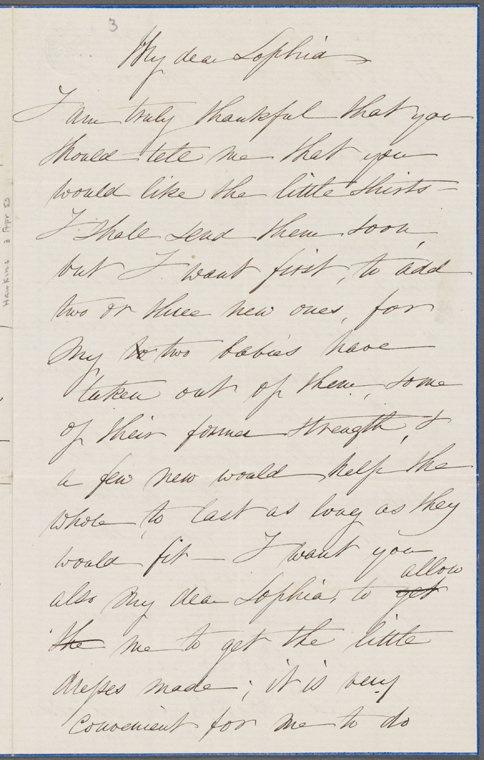 3
My dear Sophia
I am truly thankful that you
should tell me that you
would like the little shirts –
I shall send them soon,
but I want first, to add
two or three new ones, for
my two babies have
taken out of them, some
of their former strength, &
a few new would help the
whole to last as long as they
would fit – I want you
also my dear Sophia, to get allow
the me to get the little
dresses made; it is very
convenient for me to do
Hawkins 2 Apr 53